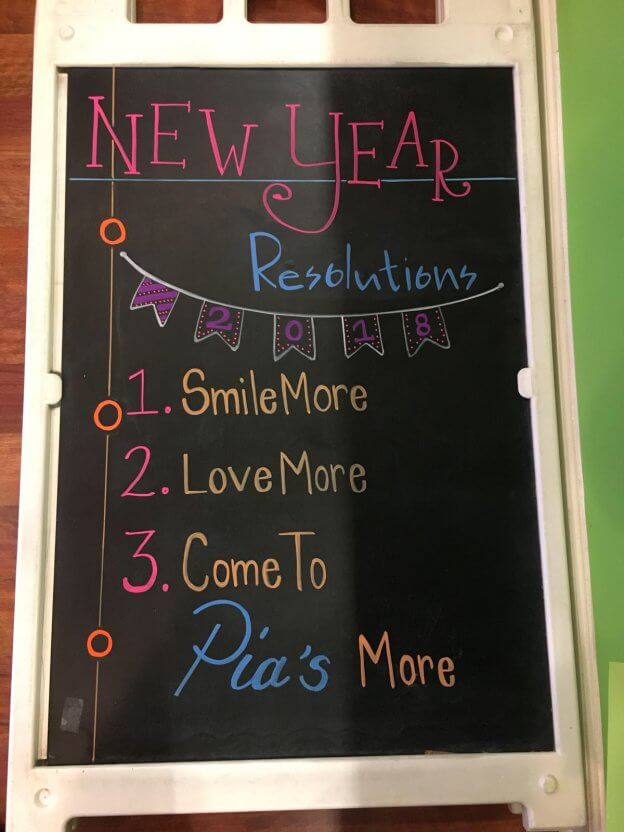 NEW YEAR
Resolutions
2018
1. Smile More
2. Love More
3. Come To
Pia's More